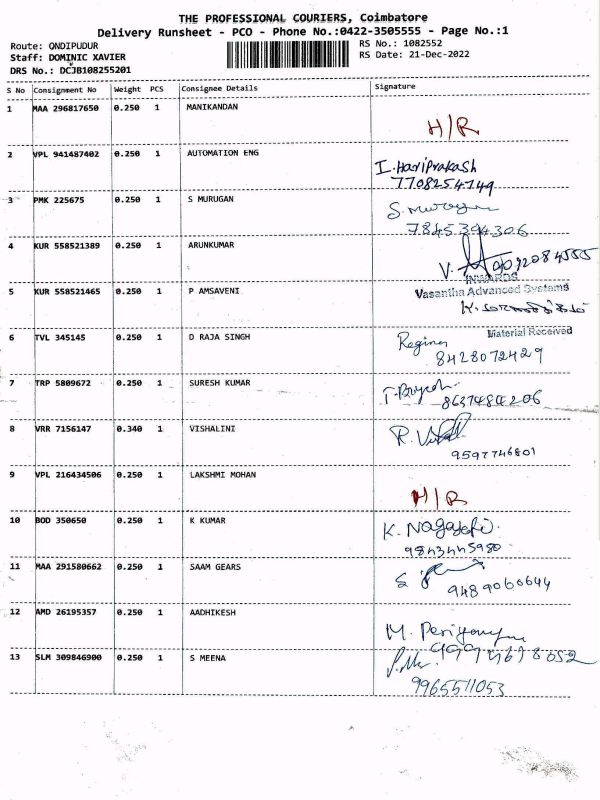 THE PROFESSIONAL COURIERS, Coimbatore
Delivery Runsheet - PCO - Phone No.:0422-3505555 - Page No.:1
Route: QNDIPUDUR RS No.: 1082552
Staff: DOMINIC XAVIER RS Date: 21-Dec-2022
DRS No.: DCJB108255201
S No Consignment No Weight PCS Consignee Details Signature
1 MAA 296817650 0.250 1 MANIKANDAN
H/R
2 VPL 941487402 0.250 1 AUTOMATION ENG
I. HariPrakash
7708254749
3 PMK 225675 0.250 1 S MURUGAN
S. Murugan
7845394306
4 KUR 558521389 0.250 1 ARUNKUMAR
V.
INWARDS
5 KUR 558521465 0.250 1 P AMSAVENI Vasantha Advanced Systems
6 TVL 345145 0.250 1 D RAJA SINGH Material Received
Regina
8428072429
7 TRP 5809672 0.250 1 SURESH KUMAR
8637484206
8 VRR 7156147 0.340 1 VISHALINI
9597746801
9 VPL 216434506 0.250 1 LAKSHMI MOHAN
H/R
10 BOD 350650 0.250 1 K KUMAR
K.
9843445980
11 MAA 291580662 0.250 1 SAAM GEARS
9489060644
12 AMD 26195357 0.250 1 AADHIKESH
M.
13 SLM 309846900 0.250 1 S MEENA
9965511053